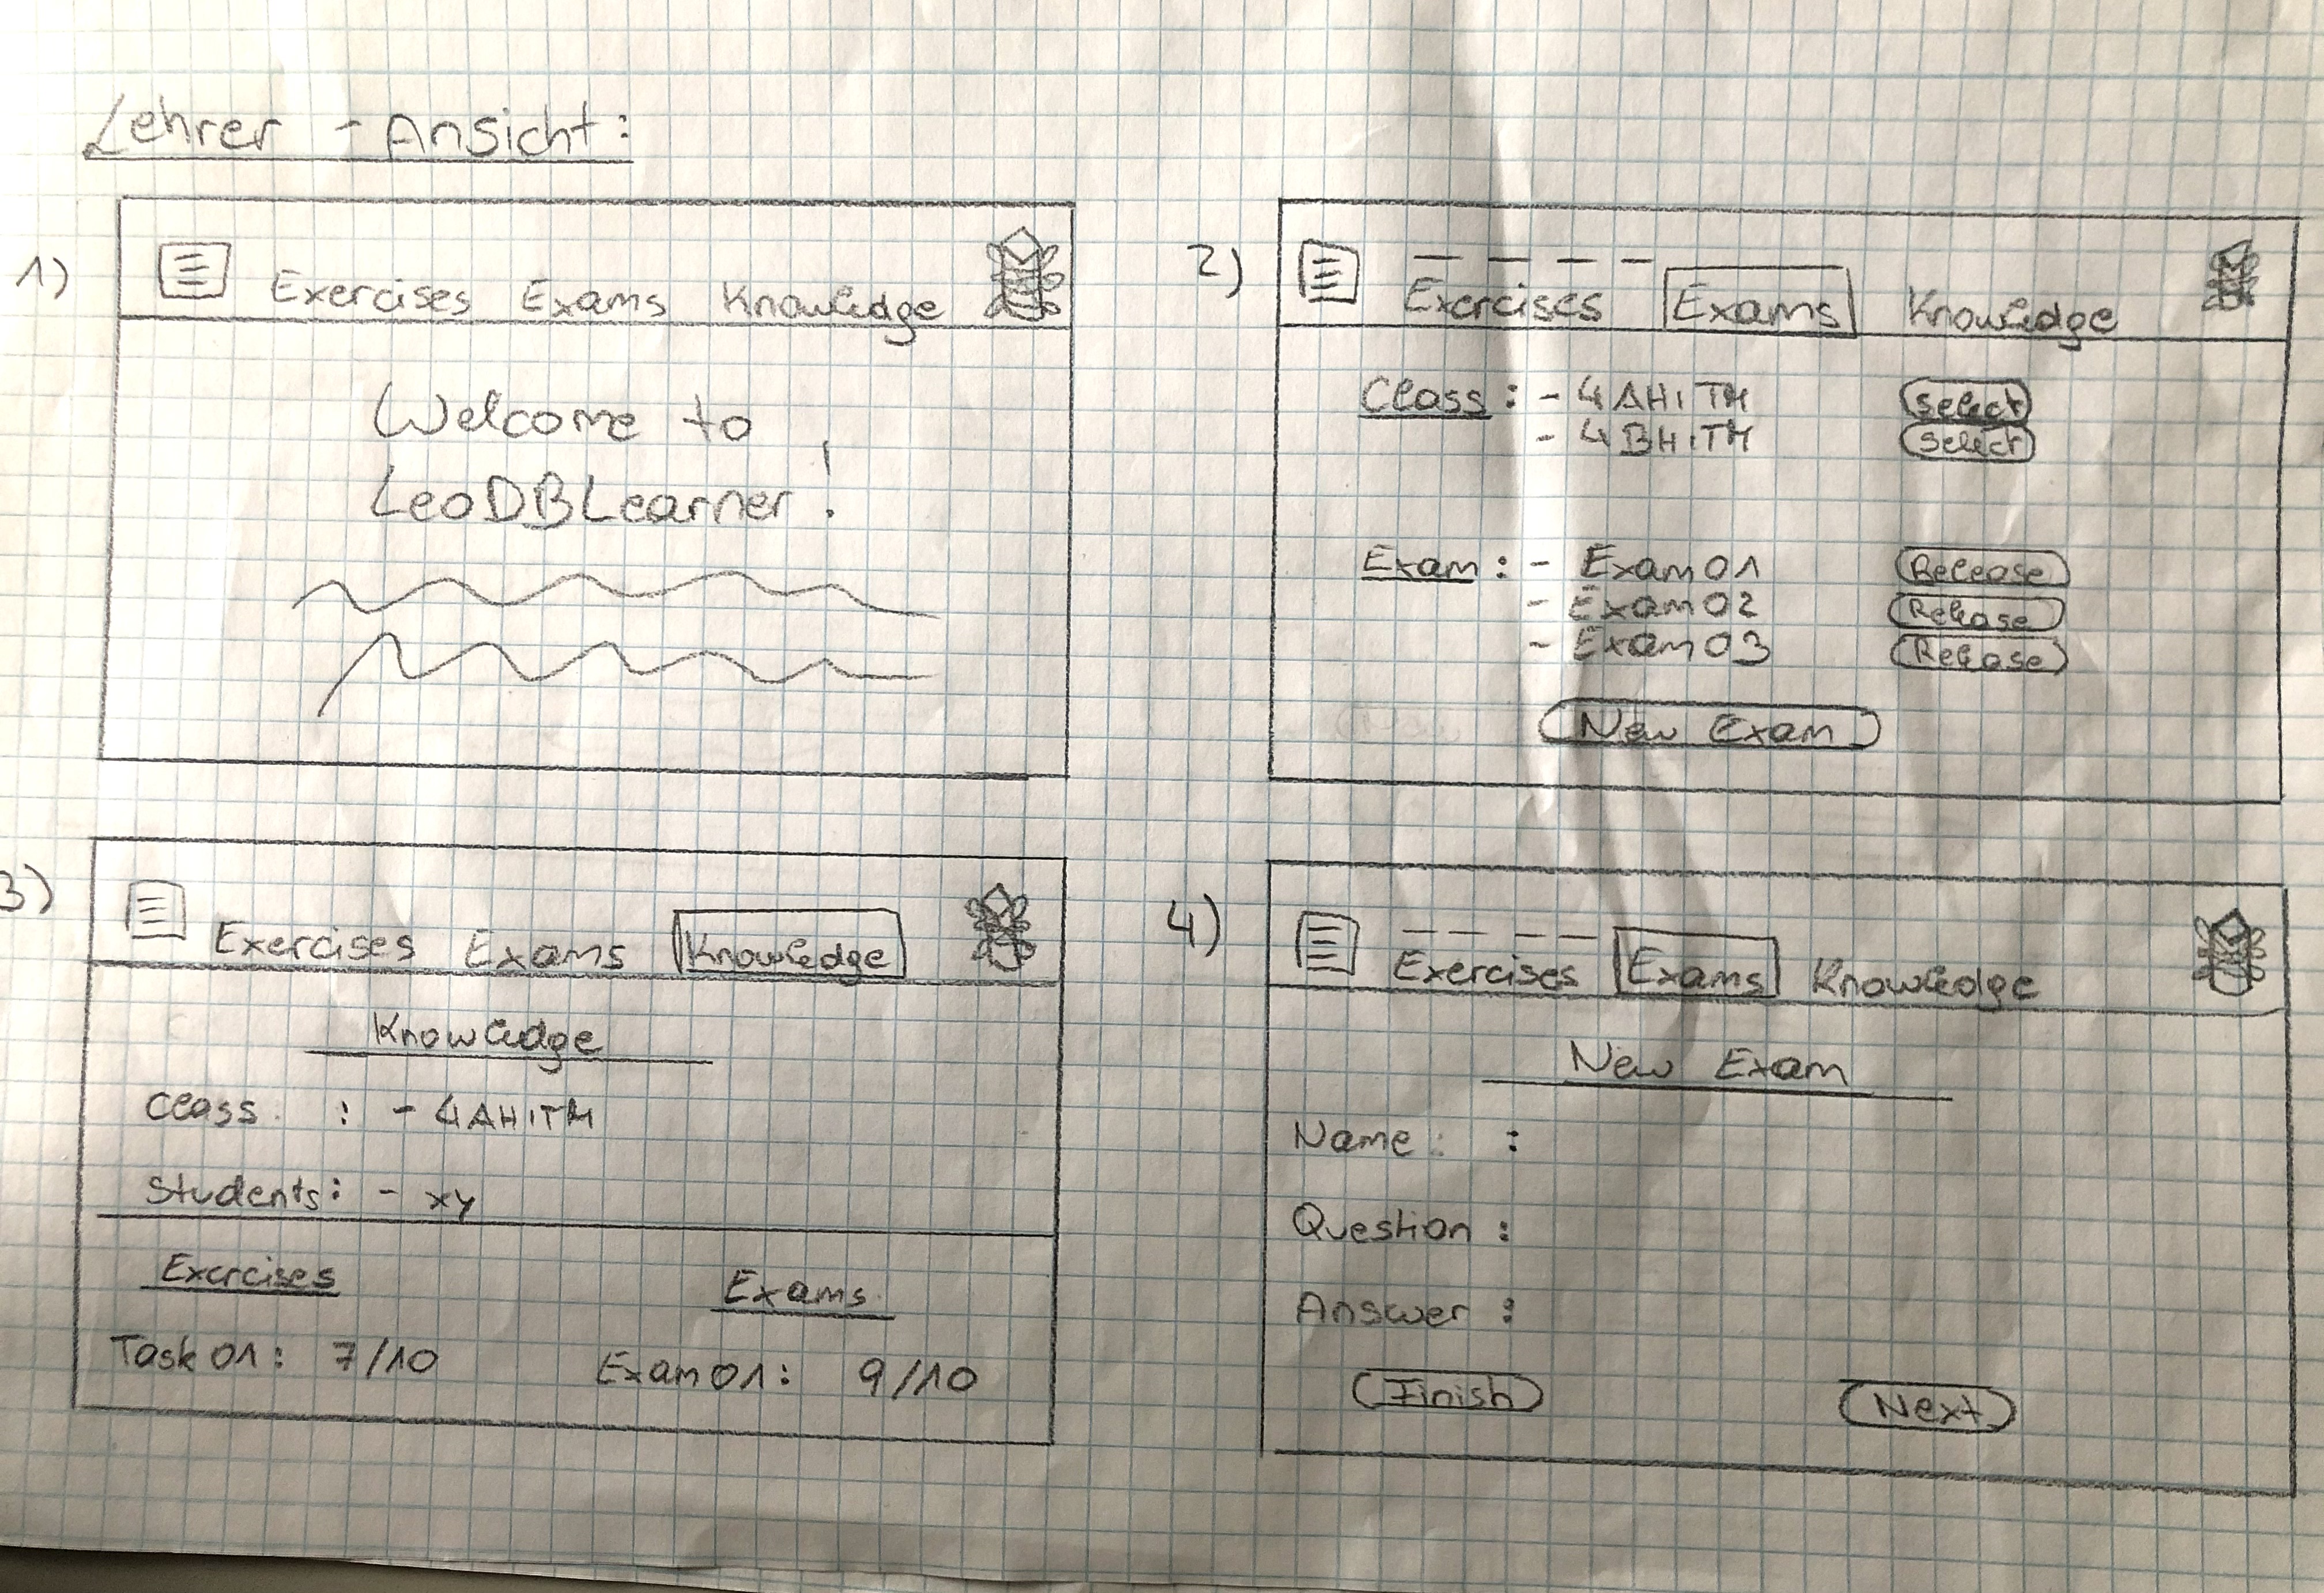 Lehrer - Ansicht:
1)
Exercises Exams Knowledge
Welcome to
LeoDBLearner!
2)
Exercises Exams Knowledge
Class: - 4AHITM Select
- 4BHITM Select
Exam: - Exam01 Release
- Exam02 Release
- Exam03 Release
New Exam
3)
Exercises Exams Knowledge
Knowledge
Class : - 4AHITM
Students: - xy
Exercises Exams
Task01: 7/10 Exam01: 9/10
4)
Exercises Exams Knowledge
New Exam
Name :
Question :
Answer :
Finish Next